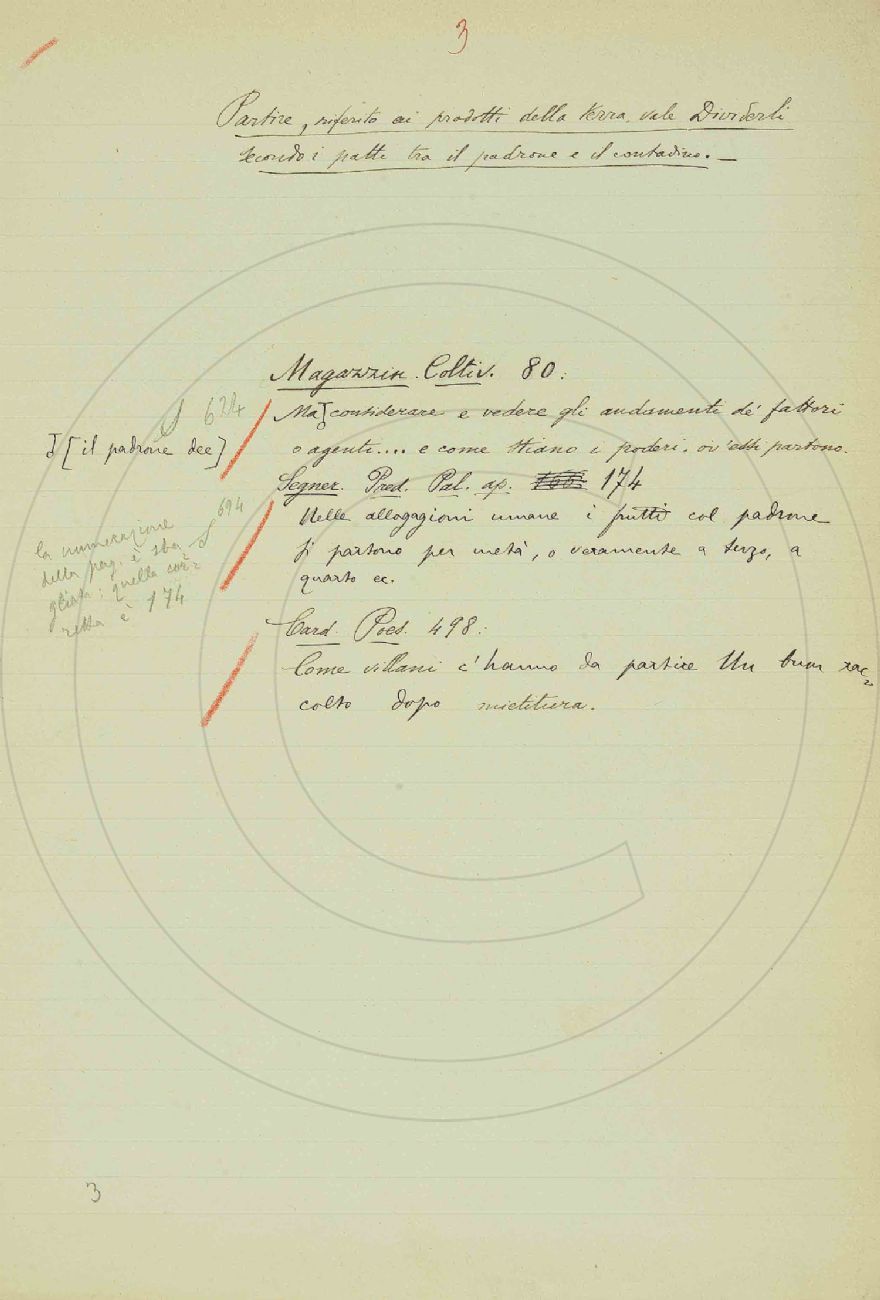 3
Partire, riferito ai prodotti della terra, vale Dividerli
secondo i patti tra il padrone e il contadino. —
Magazzin. Coltiv. 80:
S 624
Ma considerare e vedere gli andamenti de' fattori
[il padrone dee]
o agenti.... e come stiano i poderi, ov'essi partono.
Segner. Pred. Pal. ap. 174
694
Nelle allogagioni umane i frutti col padrone
si partono per metà, o veramente a terzo, a
quarto ec.
la numerazione
della pag. è sba S
gliata: quella cor=
retta è 174
Card. Poes. 498:
Come villani c'hanno da partire Un buon rac=
colto dopo mietitura.
3